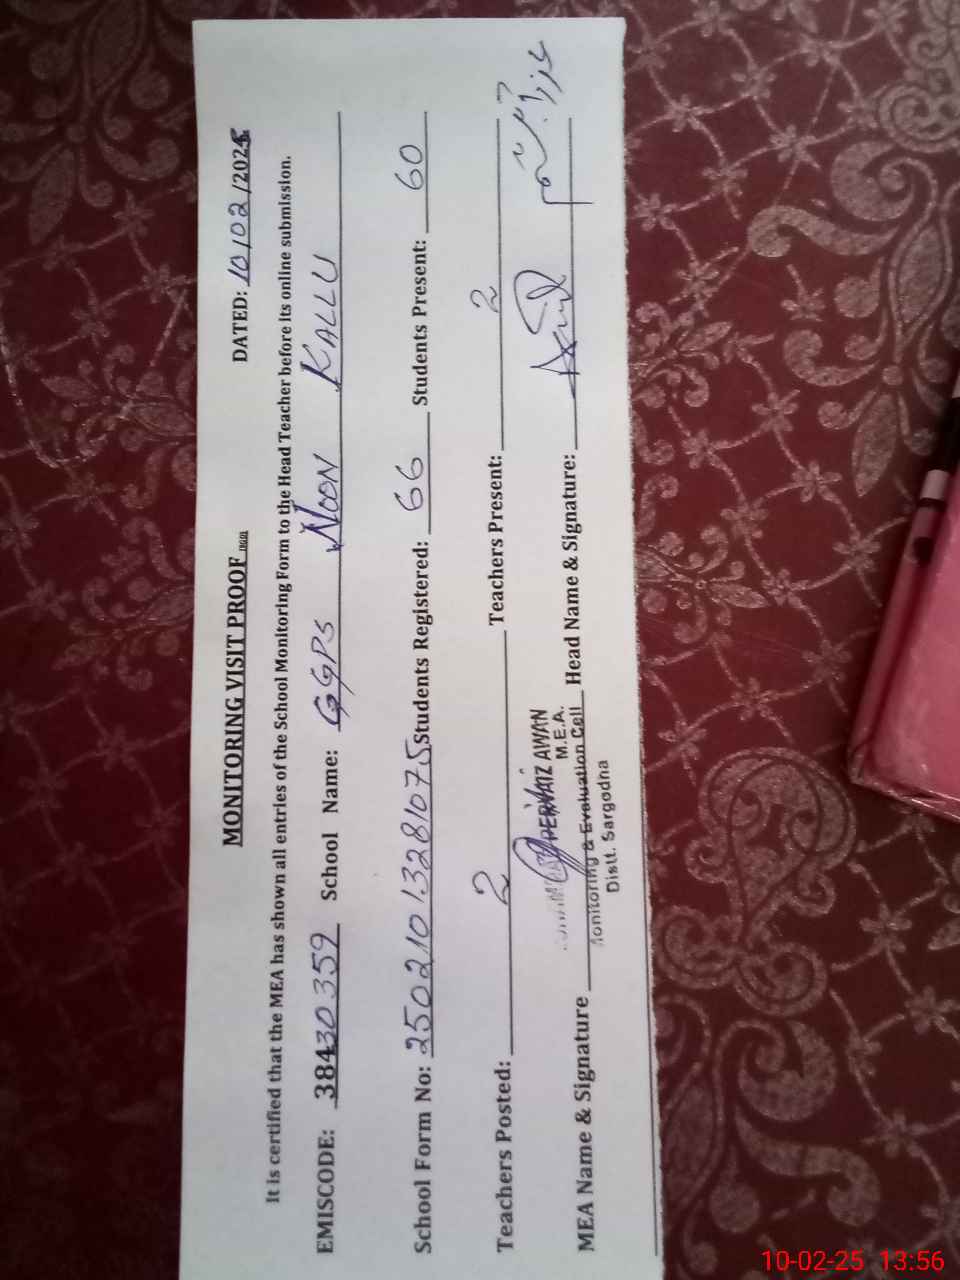 MONITORING VISIT PROOF
DATED: 10/02/2025
It is certified that the MEA has shown all entries of the School Monitoring Form to the Head Teacher before its online submission.
EMISCODE: 38430359 School Name: GGPS NOON KALLU
School Form No: 2502101328107 5 Students Registered: 66 Students Present: 60
Teachers Posted: 2 Teachers Present: 2
MEA Name & Signature Head Name & Signature:
PERWAIZ AWAN
M.E.A.
Monitoring & Evaluation Cell
Distt. Sargodha
10-02-25 13:56